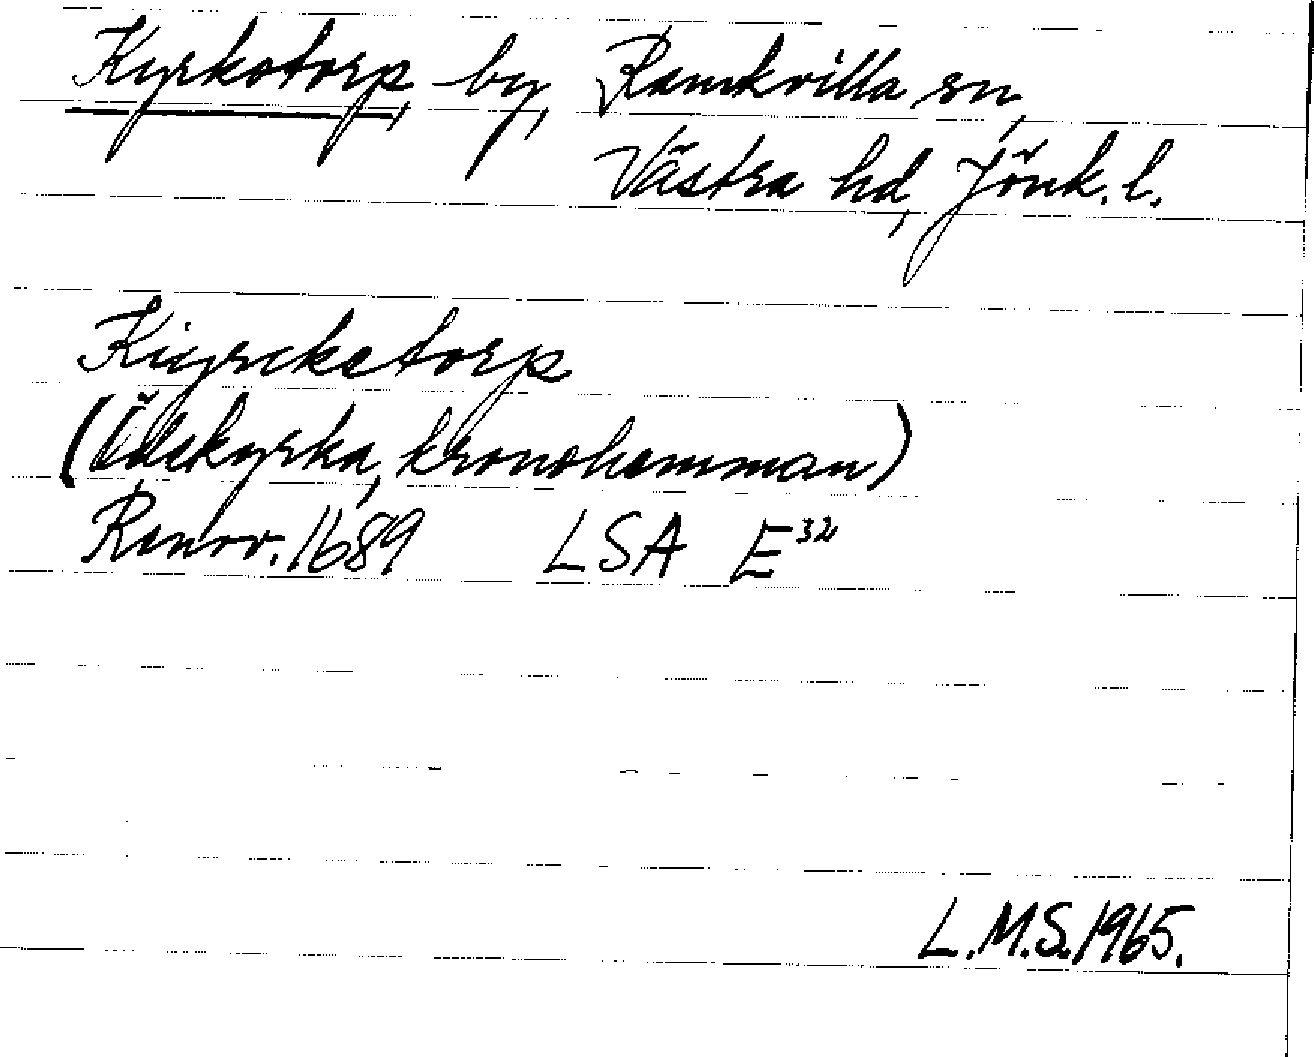 Kyrkotorp, by, Ramkvilla sn,
Västra hd, Jönk. l.
Kiyrcketorp
(Ödekyrka, kronohemman)
Renov. 1689 LSA E³²
L.M.S. 1965.